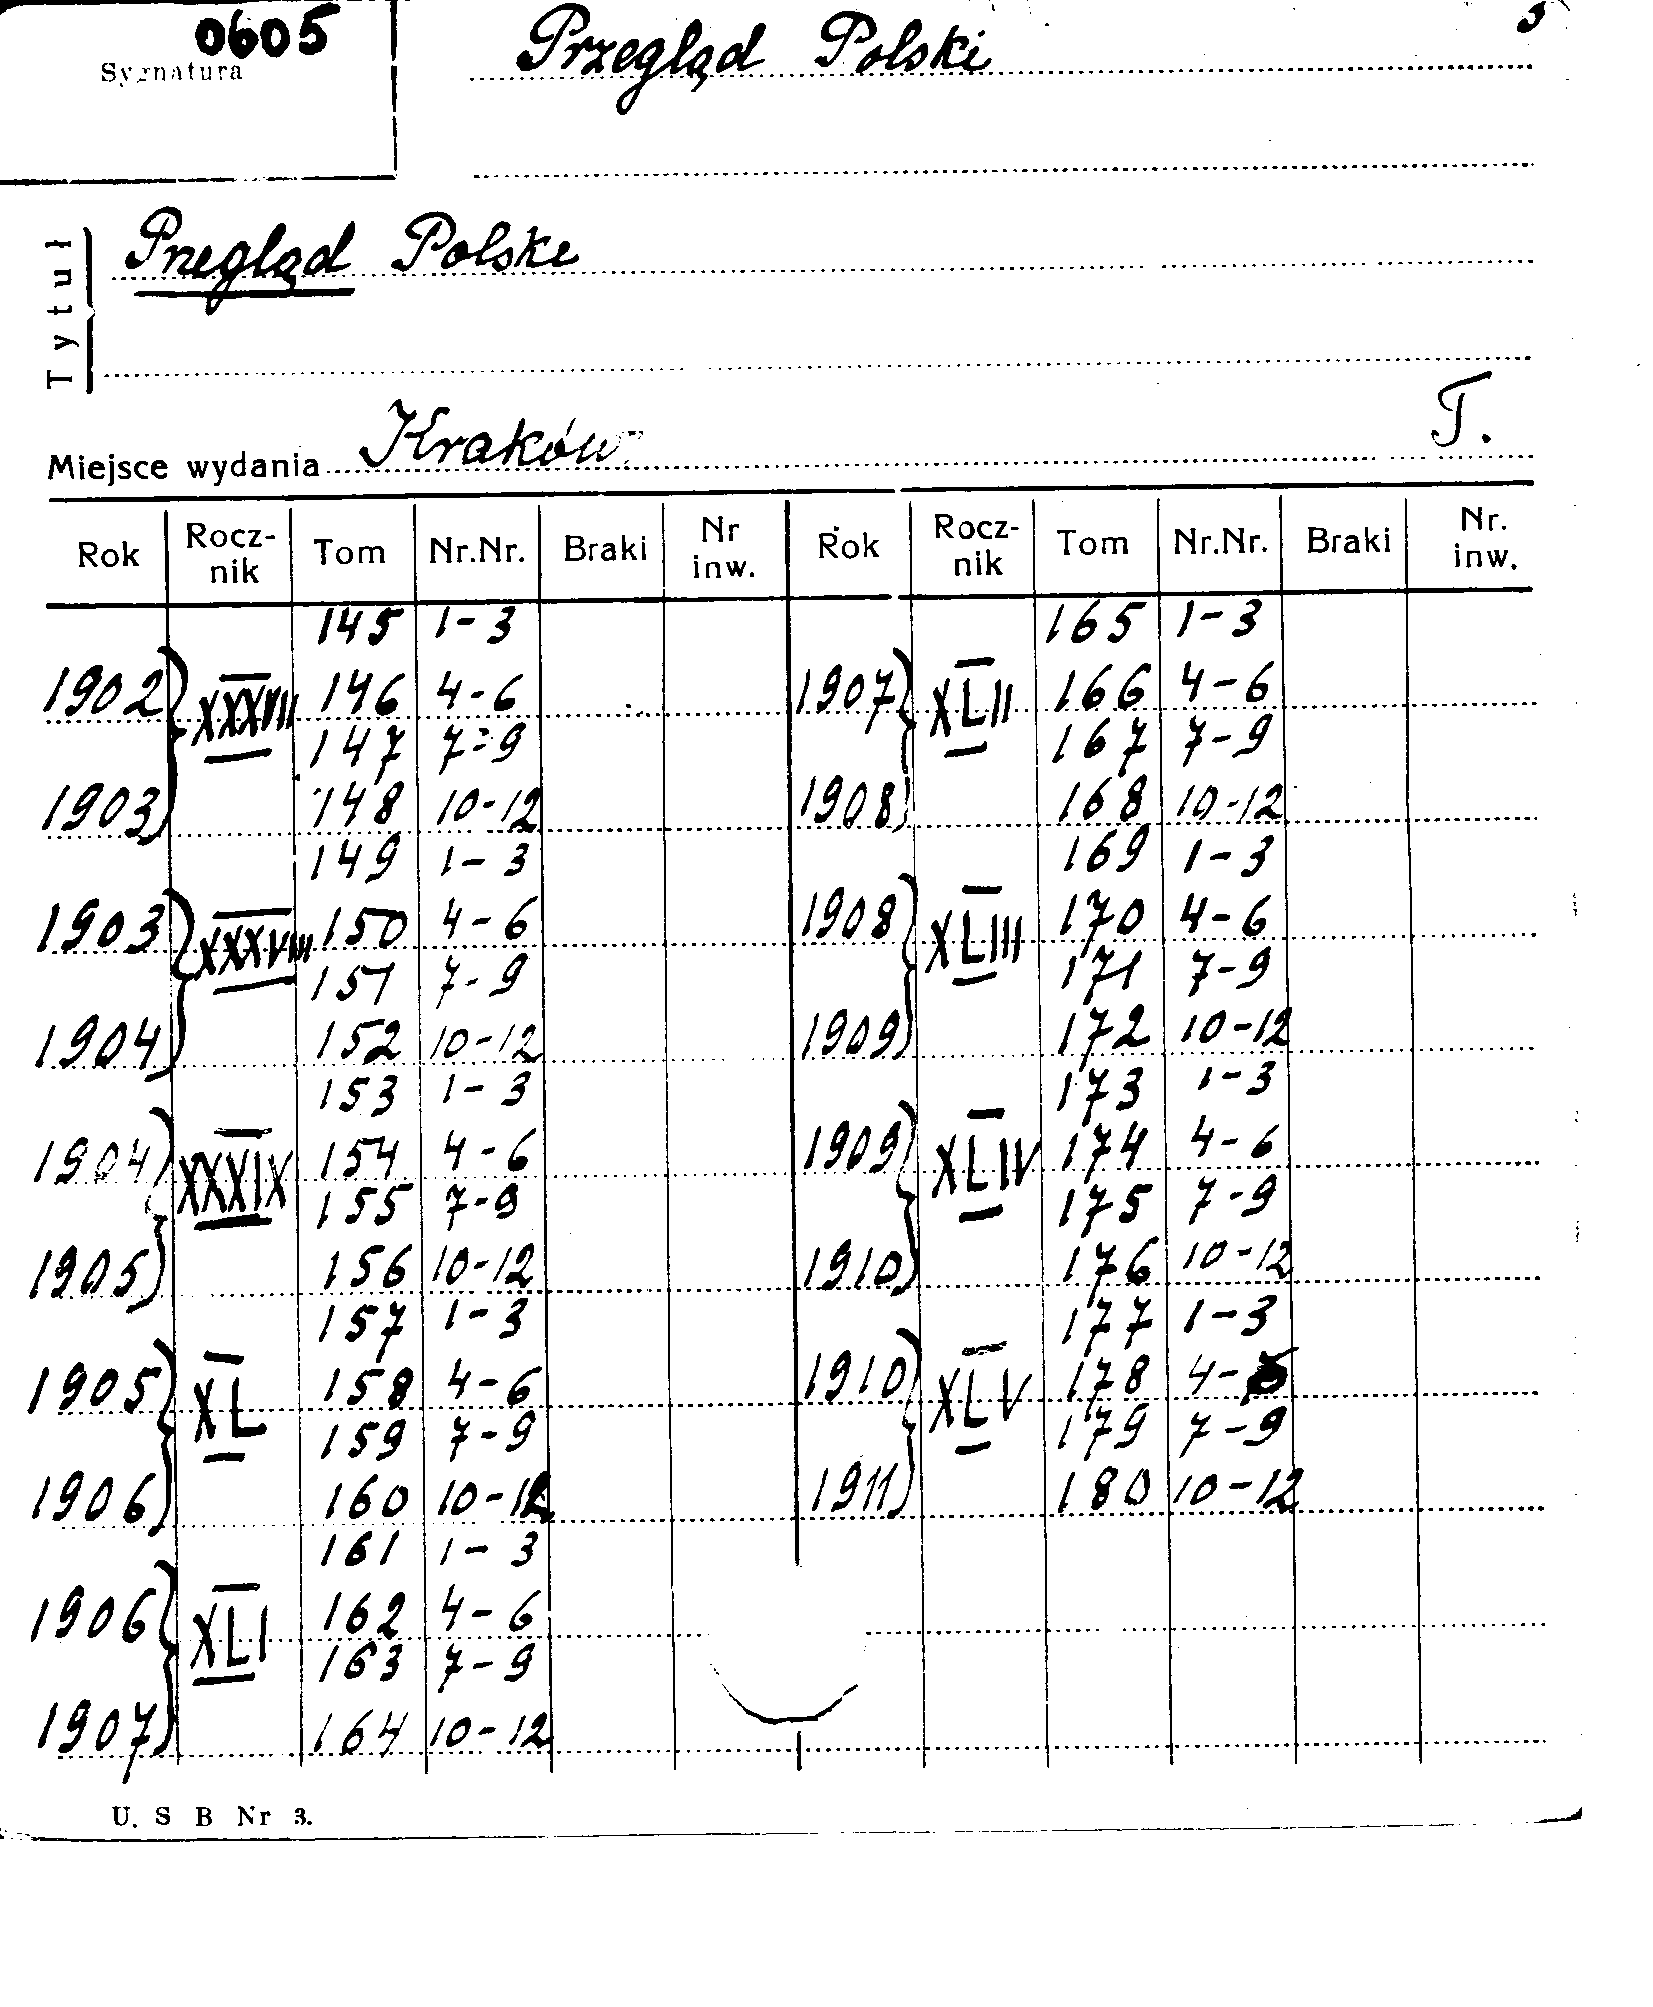 0605
Sygnatura
Przegląd Polski
5
Tytuł
Przegląd Polski
Miejsce wydania Kraków T.
Rok Rocz-nik Tom Nr.Nr. Braki Nr inw. Rok Rocz-nik Tom Nr.Nr. Braki Nr. inw.
145 1-3 165 1-3
1902 XXXVII 146 4-6 1907 XLII 166 4-6
147 7-9 167 7-9
1903 148 10-12 1908 168 10-12
149 1-3 169 1-3
1903 XXXVIII 150 4-6 1908 XLIII 170 4-6
151 7-9 171 7-9
1904 152 10-12 1909 172 10-12
153 1-3 173 1-3
1904 XXXIX 154 4-6 1909 XLIV 174 4-6
155 7-9 175 7-9
1905 156 10-12 1910 176 10-12
157 1-3 177 1-3
1905 XL 158 4-6 1910 XLV 178 4-6
159 7-9 179 7-9
1906 160 10-12 1911 180 10-12
161 1-3
1906 XLI 162 4-6
163 7-9
1907 164 10-12
U. S B Nr 3.